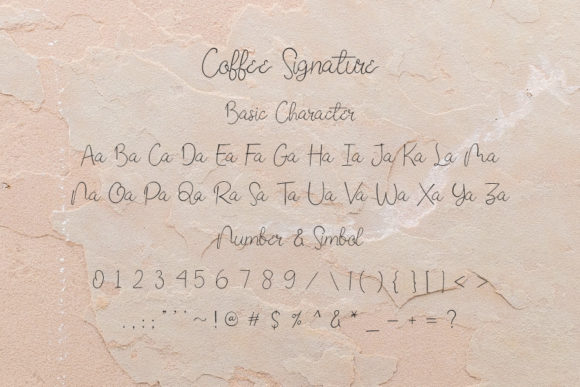 Coffee Signature
Basic Character
Aa Ba Ca Da Ea Fa Ga Ha Ia Ja Ka La Ma
Na Oa Pa Qa Ra Sa Ta Ua Va Wa Xa Ya Za
Number & Simbol
0 1 2 3 4 5 6 7 8 9 / \ | ( ) { } [ ] < >
. , : ; " ' ' ~ ! @ # $ % ^ & * _ - + = ?